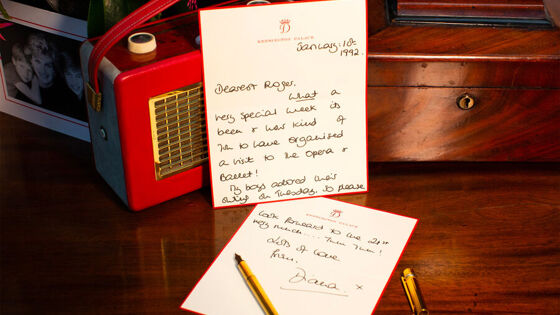 D
KENSINGTON PALACE
January: 10th
1992.
Dearest Roger,
What a
very special week its
been & how kind of
to have organised
a visit to the Opera &
Ballet!
My boys adored their
outing on Tuesday, so please
KENSINGTON PALACE
look forward to the 21st
very much.... Yum Yum!
Lots of love
from,
Diana. x